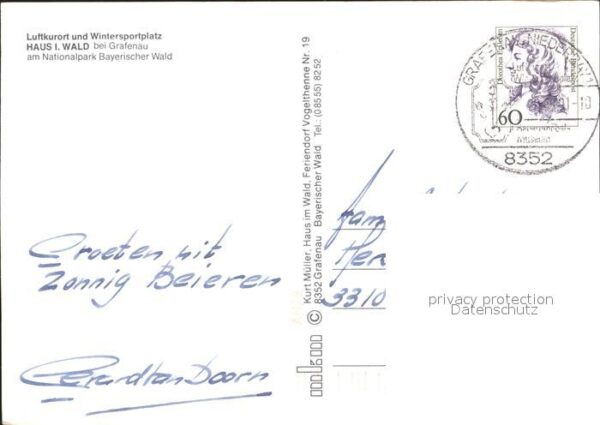 Luftkurort und Wintersportplatz
HAUS I. WALD bei Grafenau
am Nationalpark Bayerischer Wald
Groeten uit
Zonnig Beieren
Kurt Müller, Haus im Wald, Feriendorf Vogelthenne Nr. 19
© 8352 Grafenau Bayerischer Wald Tel.: (08555) 8252
GRAFENAU, NIEDERBAY
60
8352
Fam
3310
privacy protection
Datenschutz